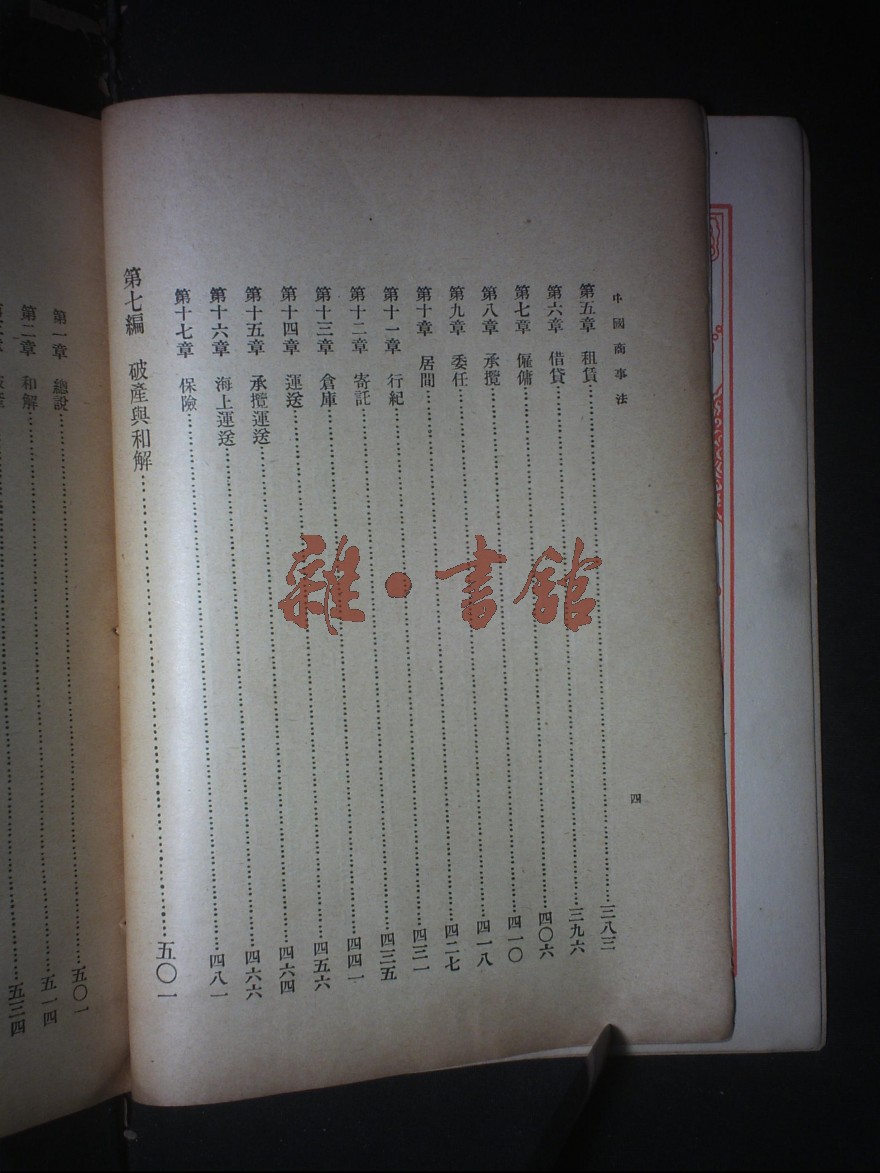 中國商事法
四
第五章 租賃……三八三
第六章 借貸……三九六
第七章 僱傭……四〇六
第八章 承攬……四一〇
第九章 委任……四一八
第十章 居間……四二七
第十一章 行紀……四三一
第十二章 寄託……四三五
第十三章 倉庫……四四一
第十四章 運送……四五六
第十五章 承攬運送……四六四
第十六章 海上運送……四六六
第十七章 保險……四八一
第七編 破產與和解……五〇一
第一章 總設……五〇一
第二章 和解……五一四
五三四
雜·書館